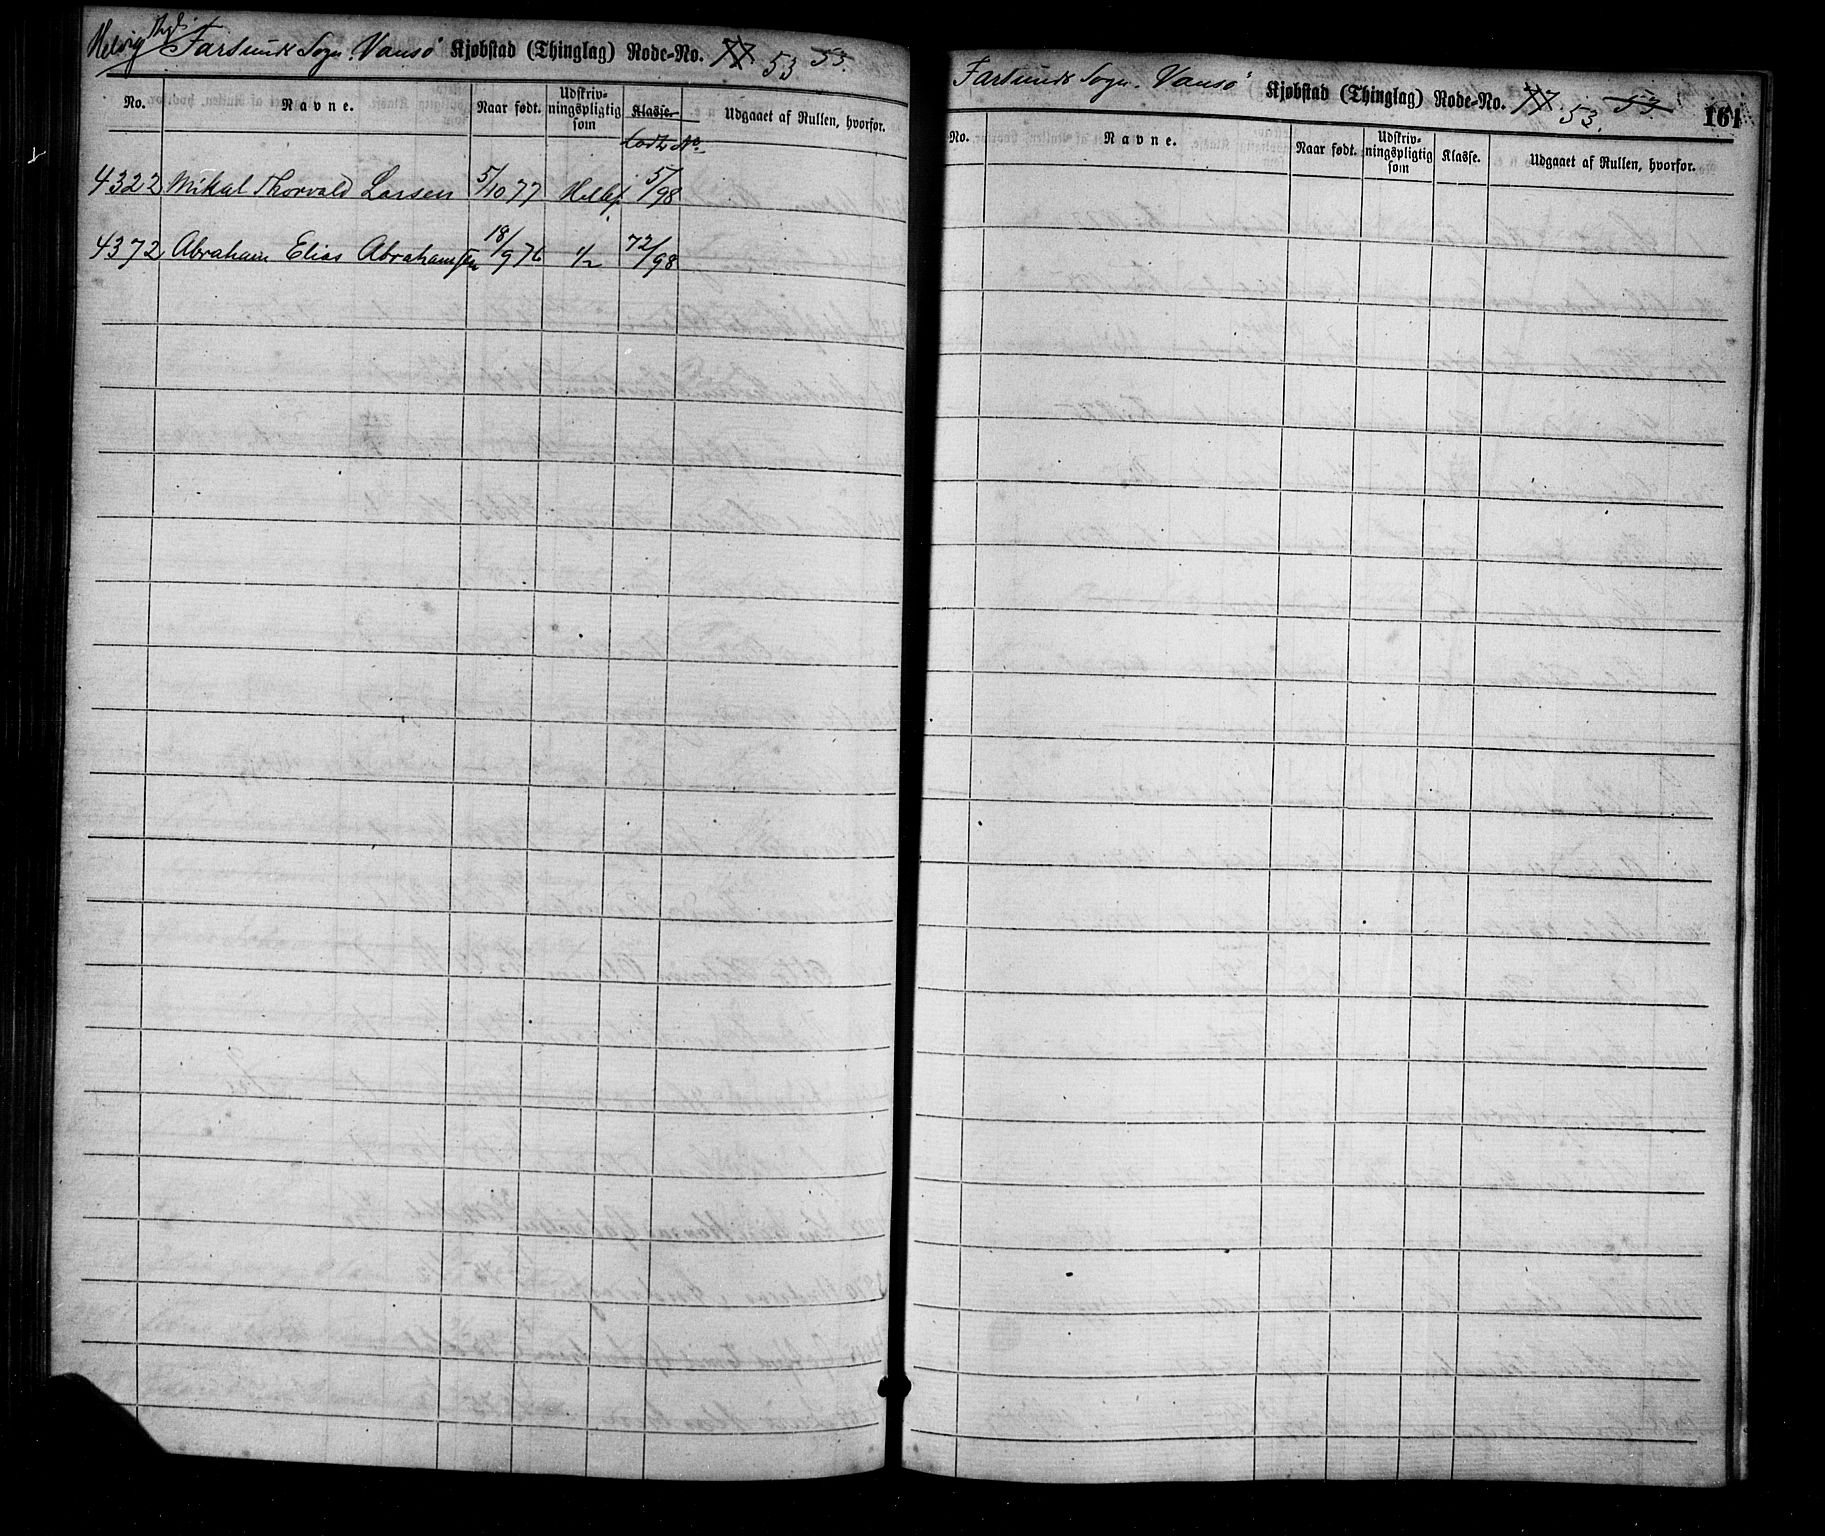 Helvig Thgl.
Farsunds Sogn. Vansø Kjøbstad (Thinglag) Rode-No. 77 53 55.
No. Navne. Naar født. Udskriv-ningspligtig som Klasse. Udgaaet af Rullen, hvorfor.
Lodtr No.
4322 Mikal Thorvald Larsen 5/10 77 5/98
4372 Abraham Elias Abrahamsen 18/9 76 1/2 72/98
Farsunds Sogn. Vansø Kjøbstad (Thinglag) Rode-No. 77 53. 161
No. Navne. Naar født. Udskriv-ningspligtig som Klasse. Udgaaet af Rullen, hvorfor.